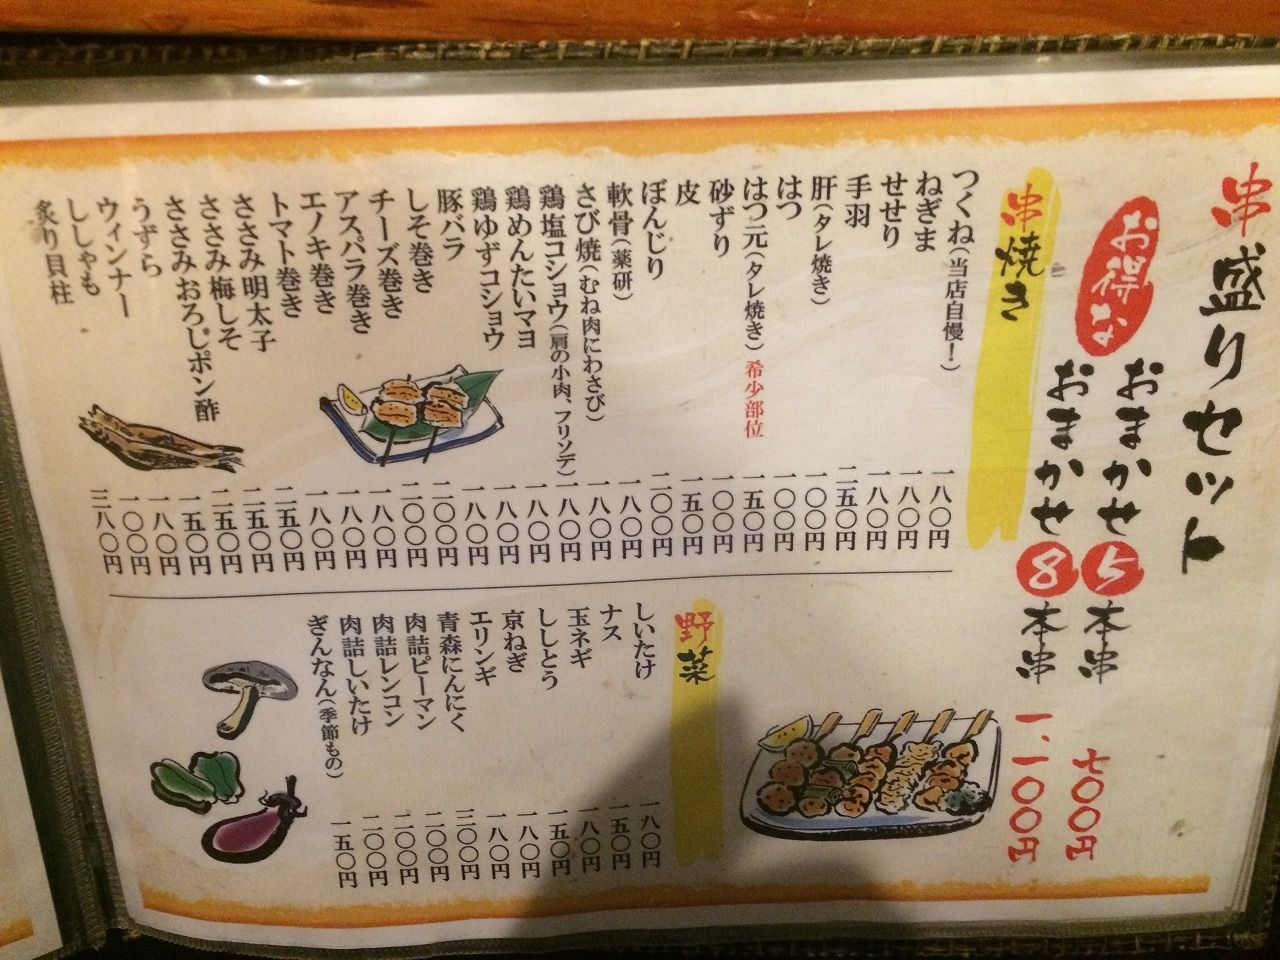 串盛りセット
お得な
おまかせ5本串 七〇〇円
おまかせ8本串 一、一〇〇円
串焼き
つくね(当店自慢!) 一八〇円
ねぎま 一八〇円
せせり 一八〇円
手羽 二五〇円
肝(タレ焼き) 一〇〇円
はつ 一〇〇円
はつ元(タレ焼き)希少部位 一五〇円
砂ずり 一〇〇円
皮 一五〇円
ぼんじり 二〇〇円
軟骨(薬研) 一八〇円
さび焼(むね肉にわさび) 一八〇円
鶏塩コショウ(肩の小肉、フリソデ) 一八〇円
鶏めんたいマヨ 一八〇円
鶏ゆずコショウ 一八〇円
豚バラ 一八〇円
しそ巻き 二〇〇円
チーズ巻き 二〇〇円
アスパラ巻き 一八〇円
エノキ巻き 一八〇円
トマト巻き 一八〇円
ささみ明太子 二五〇円
ささみ梅しそ 二五〇円
ささみおろしポン酢 二五〇円
うずら 一五〇円
ウィンナー 一八〇円
ししゃも 一〇〇円
炙り貝柱 三八〇円
野菜
しいたけ 一八〇円
ナス 一五〇円
玉ネギ 一八〇円
ししとう 一五〇円
京ねぎ 一八〇円
エリンギ 一八〇円
青森にんにく 三〇〇円
肉詰ピーマン 二〇〇円
肉詰レンコン 二〇〇円
肉詰しいたけ 二〇〇円
ぎんなん(季節もの) 一五〇円